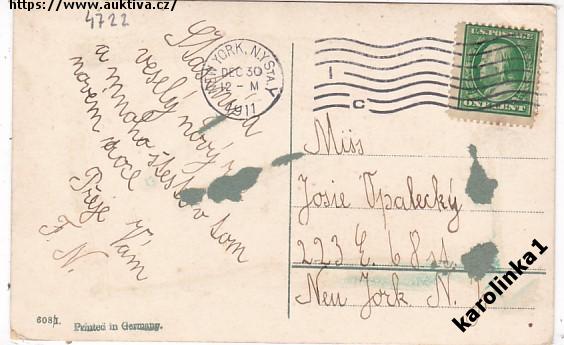 https://www.auktiva.cz/
4722
Šťastný a
veselý nový r
a mnoho štěstí v tom
novém roce
Přeje Vám
F. N.
NEW YORK, N.Y. STA. Y
DEC 30
12 - M
1911
1
C
U.S. POSTAGE
ONE CENT
Miss
Josie Opalecký
223 E. 68 st.
New York. N.
6081.
Printed in Germany.
karolinka1